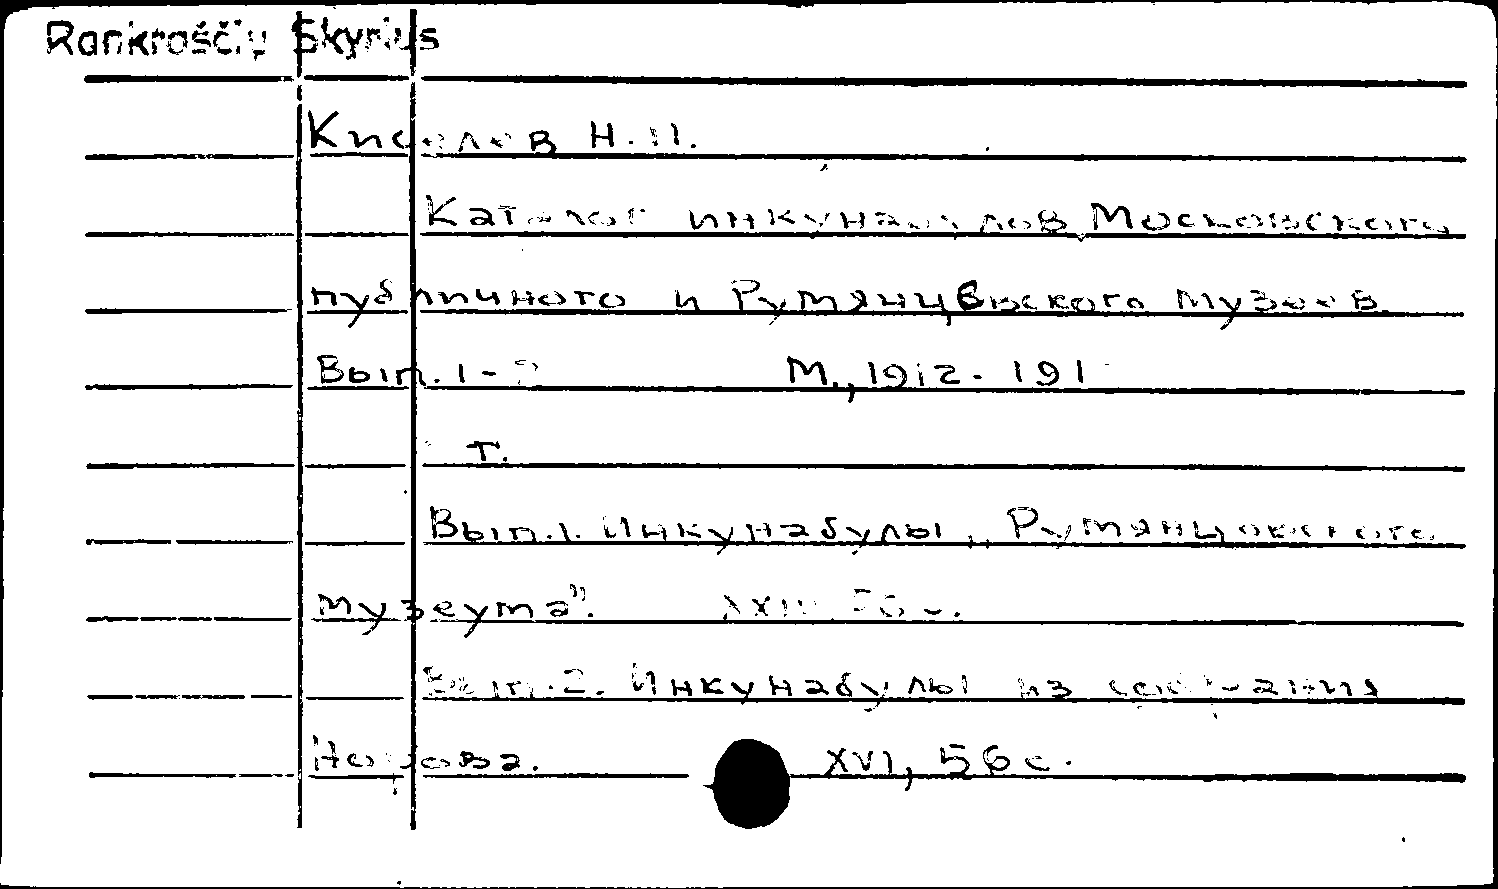 Rankraščių Skyrius
Киселев Н.П.
Каталог инкунабулов Московского
публичного и Румянцевского музеев.
Вып. 1- М., 1912-191
т.
Вып.1. Инкунабулы „Румянцовского
музеума". 56 с.
Вып.2. Инкунабулы из собрания
Норова. XVI, 56 с.